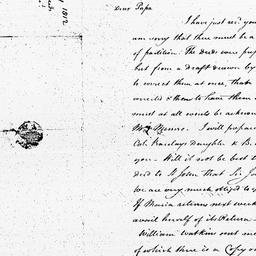 Dear Papa
I have just rec'd your
am sorry that there must be a
of partition. The deeds were prep
but from a draft drawn by
to correct them at once, that
corrected & then to have them
must at all events be acknow
Mr Munro. I will prepare
Col. Barclays daughter & B.
you - Will it not be best to
deed to St John that Sir J
We are very much obliged to y
If Maria returns next week
avail herself of its Return
William Watkin sent me
of which there is a Copy on
1812